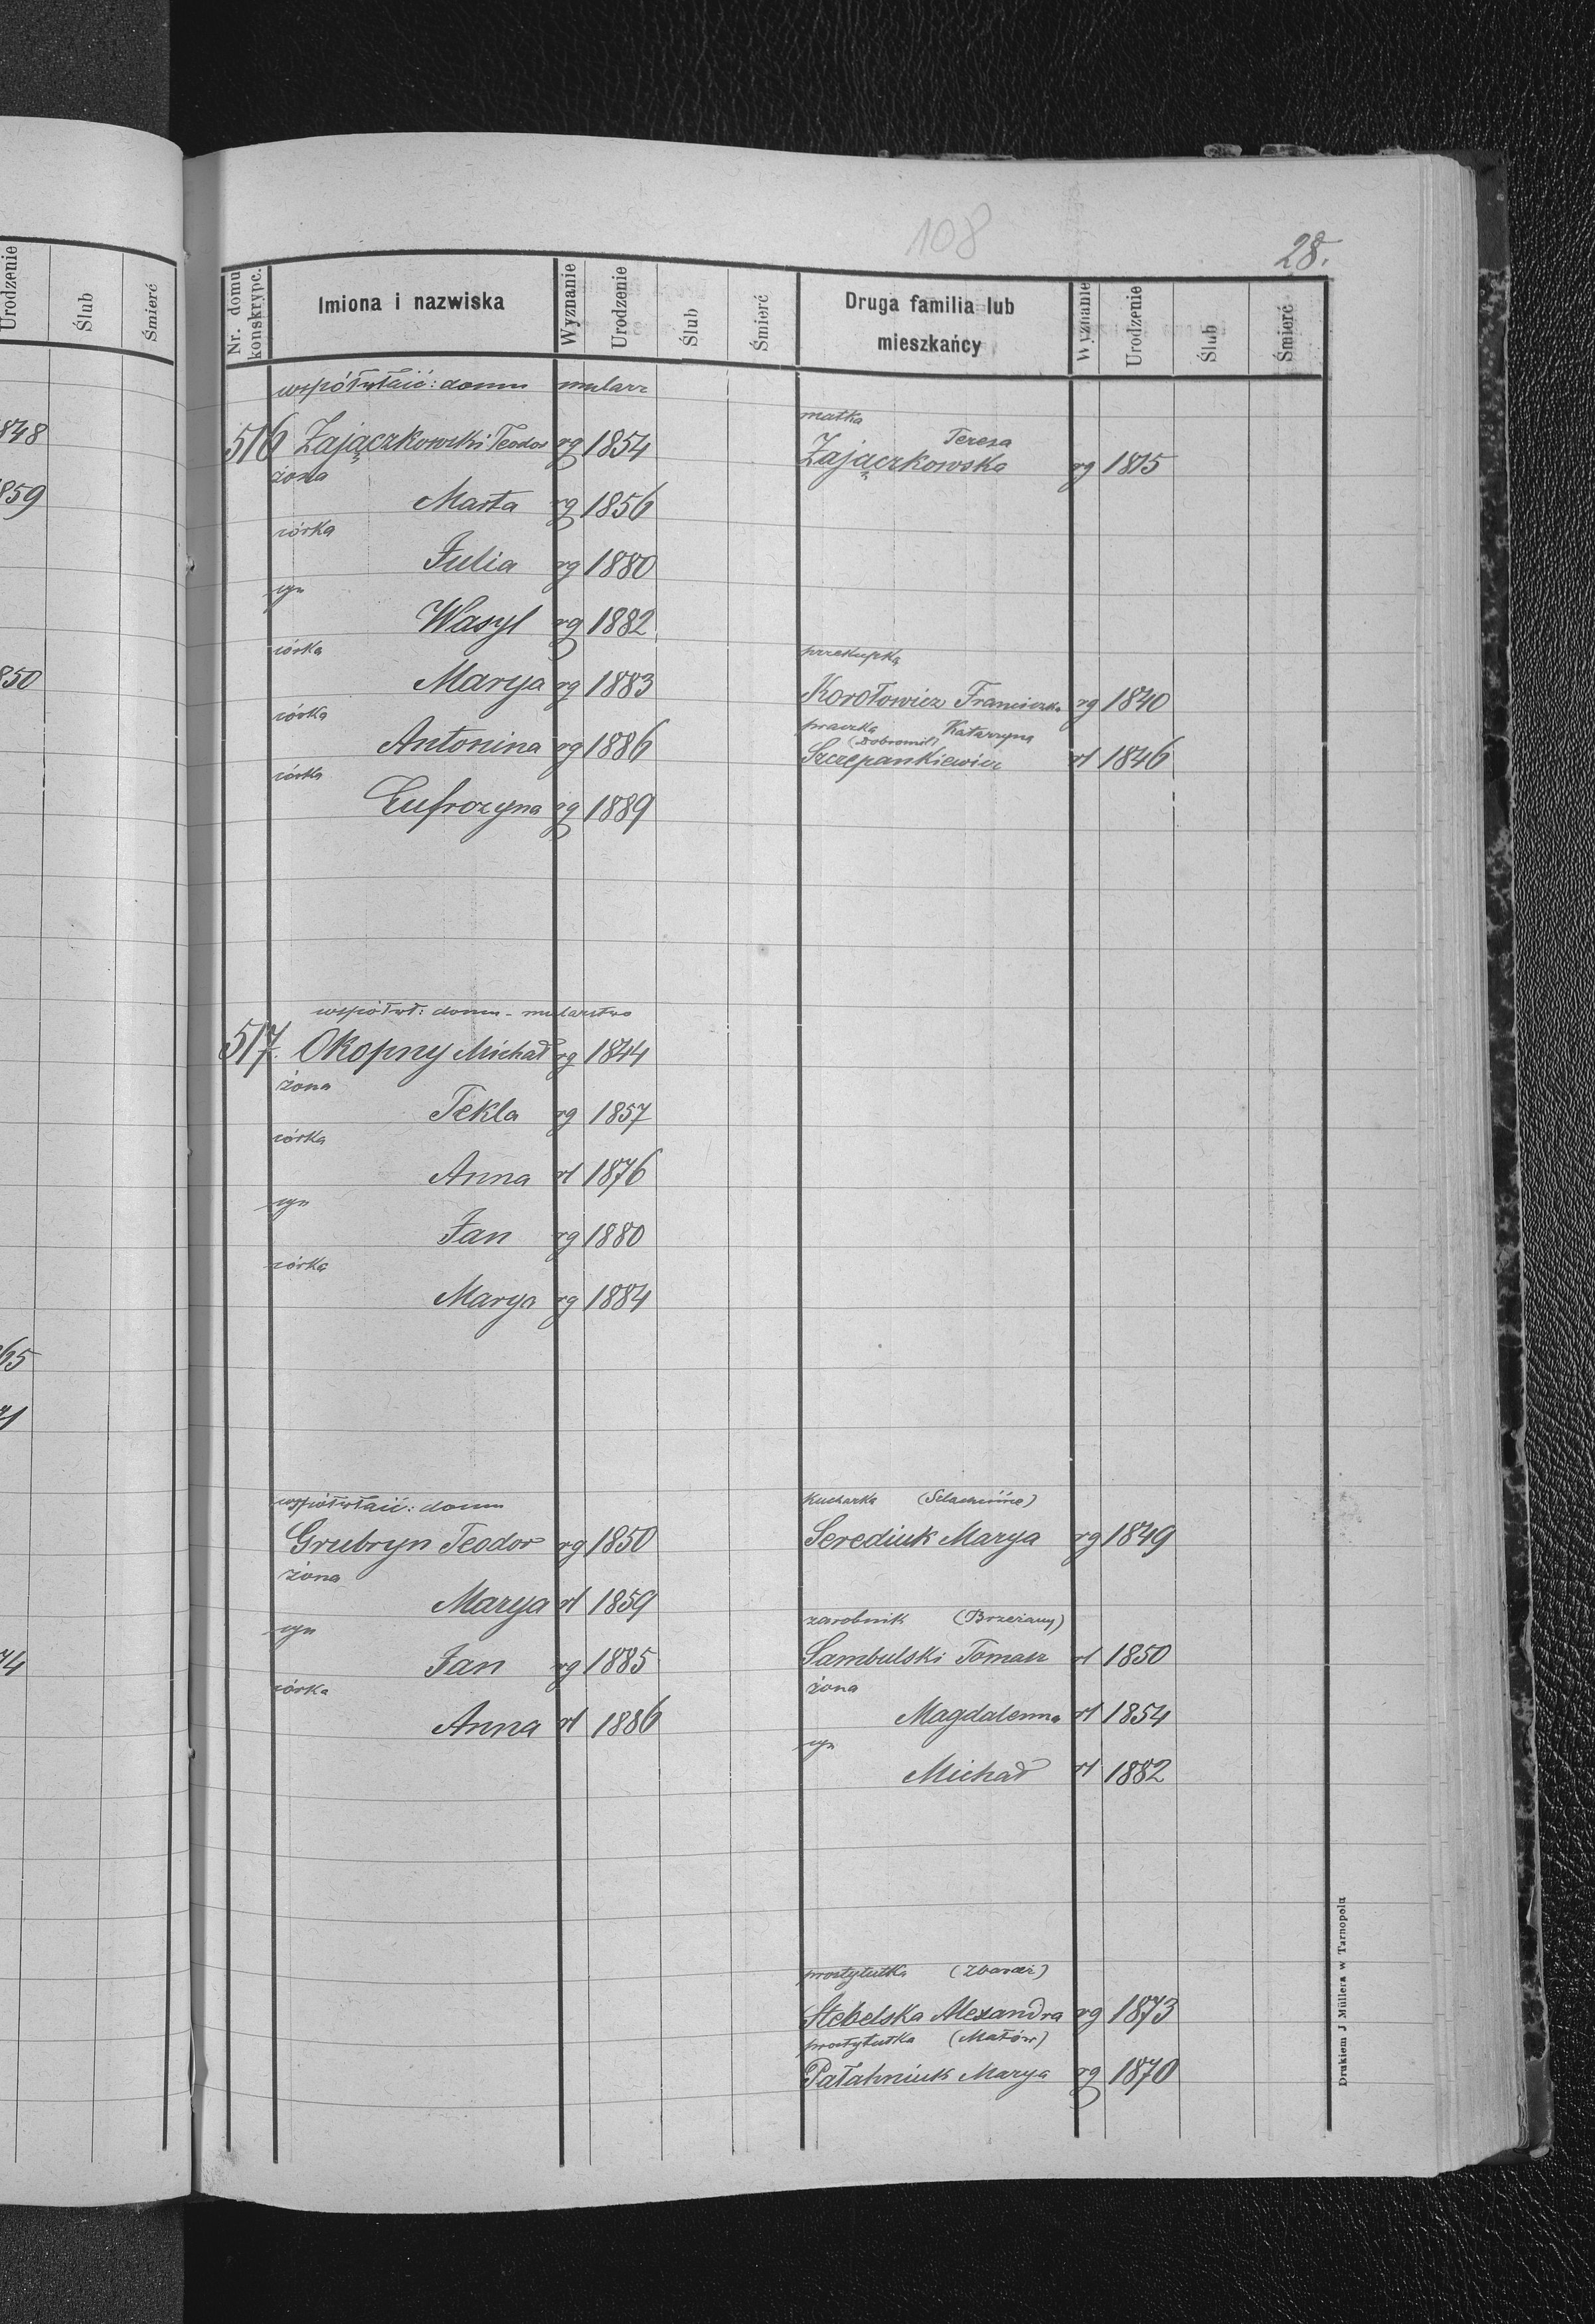 108
28.
Urodzenie Ślub Śmierć
Nr. domu konskrypc. Imiona i nazwiska Wyznanie Urodzenie Ślub Śmierć Druga familia lub mieszkańcy Wyznanie Urodzenie Ślub Śmierć
848
859
850
65
71
74
współwłaść: domu mularz
516 Zajączkowski Teodor rg 1854
żona
Marta rg 1856
córka
Julia rg 1880
syn
Wasyl rg 1882
córka
Marya rg 1883
córka
Antonina rg 1886
córka
Eufrozyna rg 1889
matka
Teresa
Zajączkowska rg 1815
przekupka
Korołowicz Franciszka rg 1840
praczka Katarzyna
(Dobromil)
Szczepankiewicz rł 1846
współwł: domu - mularstwo
517. Okopny Michał rg 1844
żona
Tekla rg 1857
córka
Anna rł 1876
syn
Jan rg 1880
córka
Marya rg 1884
współwłaść: domu
Grubryn Teodor rg 1850
żona
Marya rł 1859
syn
Jan rg 1885
córka
Anna rł 1886
kucharka
Serediuk Marya rg 1849
zarobnik (Brzeżany)
Sambulski Tomasz rł 1850
żona
Magdalenna rł 1854
syn
Michał rł 1882
prostytutka (Zbaraż)
Stebelska Alexandra rg 1873
prostytutka (Małów)
Pałahniuk Marya rg 1870
Drukiem J Müllera w Tarnopolu